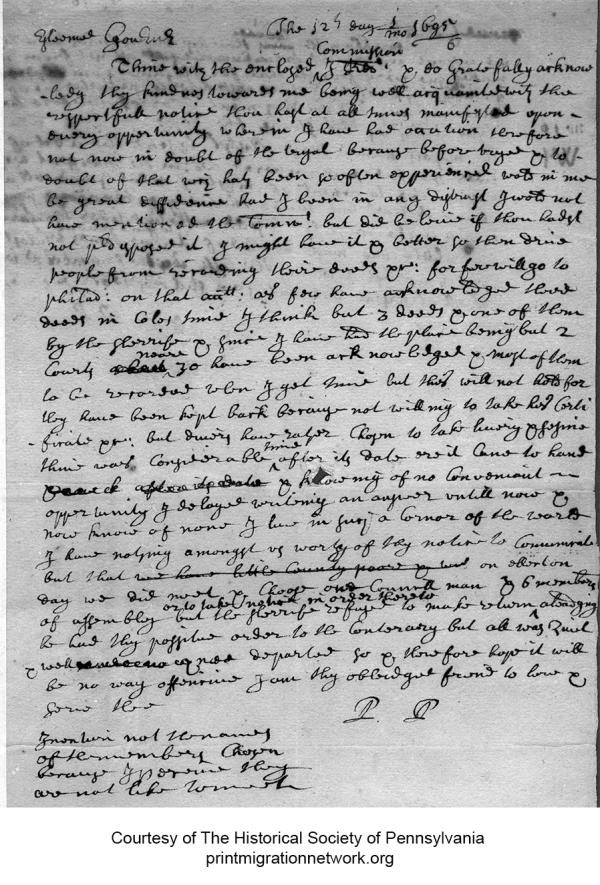 Esteemed Governr The 12th day 1/mo 1695/6
Commission
Thine wth the enclosed I & do Gratefully acknow
-ledg thy kindnes towards me being well acquainted with the
respectfull notice thou hast at all times manifested upon
every opportunity wherein I have had ocation therefore
not now in doubt of the because before & to
doubt of that wch hath been so often experienced in me
be great diffidence had I been in any distrust I not
have mentioned the Comn: but did beleive if thou hadst
not disposed it I might have it & better so then drive
people from recording their deeds &c: for few will go to
philad: on that acctt: as few have acknowledged there
deeds in Coles time I think but 3 deeds & one of them
by the sherrife & since I have had the place being but 2
Courts neare 30 have been acknowledged & most of them
to be recorded when I get time but this will not for
they have been kept back because not willing to take his Certi
-ficate &c: but divers have rather Chosen to take livery & seisin
thine was Considerable time after its date ere it Came to hand
& knowing of no Convenient
opportunity I delayed writeing an answer untill now &
now know of none I live in such a Corner of the world
I have nothing amongst us worthy of thy notice to Comunicate
but that we have little County on ellection
day we did meet & Choose one Councill man & 6 members
of assembly but the sherrife refused to make return alledging
or to take notice in order thereto
he had thy possitive order to the Conterary but all was Quiet
& well departed so & therefore hope it will
be no way offencive I am thy obliedged friend to love &
serve thee
P P
I mention not the names
of the members Chosen
because I perceive they
are not like to meet
Courtesy of The Historical Society of Pennsylvania
printmigrationnetwork.org